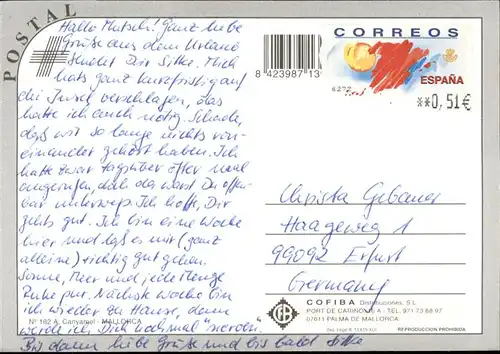 POSTAL
Hallo Mutsch! Ganz liebe
Grüße aus dem Urlaub
sendet Dir Silke. Mich
hats ganz kurzfristig auf
die Insel verschlagen, das
hatte ich auch nötig. Schade,
daß wir so lange nichts von-
einander gehört haben. Ich
hatte zwar tagsüber öfter mal
angerufen, doch da warst Du offen-
bar unterwegs. Ich hoffe, Dir
gehts gut. Ich bin eine Woche
hier und laß es mir (ganz
alleine) richtig gut gehen.
Sonne, Meer und jede Menge
Ruhe pur. Nächste Woche bin
ich wieder zu Hause, dann
werde ich Dich nochmal "nerven".
Bis dann liebe Grüße und bis bald Silke
Nº 182 A Canyamel - MALLORCA
8 423987 13
CORREOS
ESPAÑA
**0,51€
Christa Gebauer
Haageweg 1
99092 Erfurt
Germany
COFIBA Distribuciones, S L
PORT DE CARINON, TEL. 971 73 68 97
07611 PALMA DE MALLORCA
REPRODUCCION PROHIBIDA